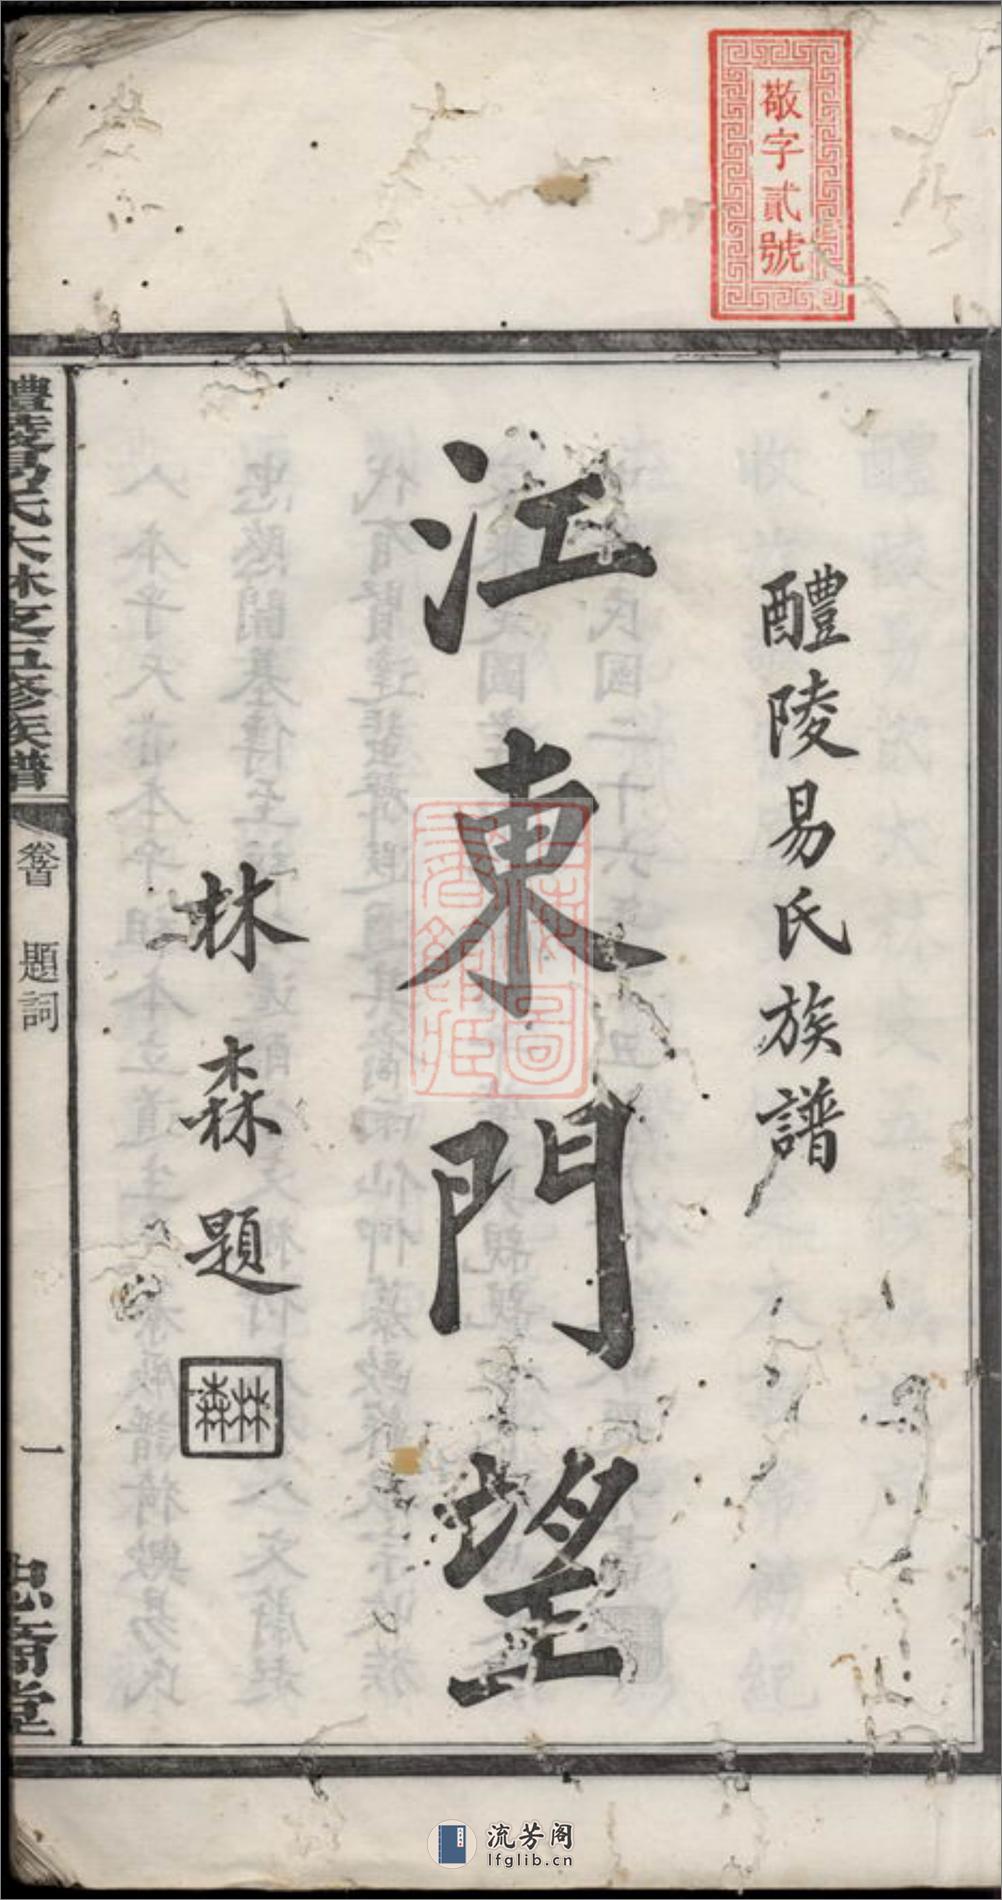 敬字貳號
醴陵易氏族譜
江東門望
林森題
林森
醴陵易氏大林支五修族譜
卷首 題詞
一
忠裔堂
流芳阁
lfglib.cn